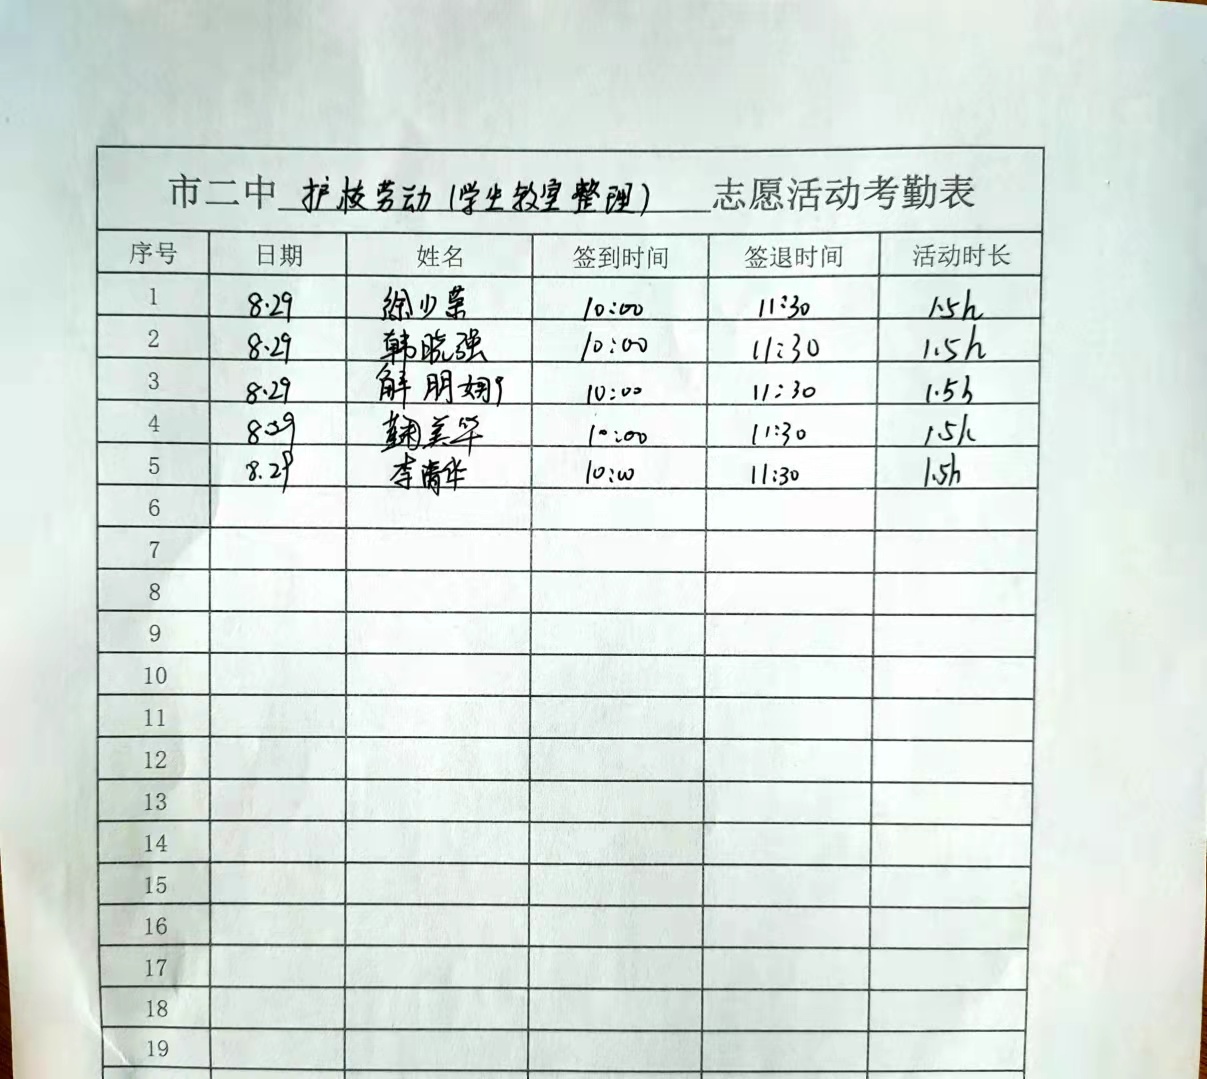 市二中 护校劳动(学生教室整理) 志愿活动考勤表
序号 日期 姓名 签到时间 签退时间 活动时长
1 8.29 徐少荣 10:00 11:30 1.5h
2 8.29 韩晓强 10:00 11:30 1.5h
3 8.29 解朋娴 10:00 11:30 1.5h
4 8.29 美华 10:00 11:30 1.5h
5 8.29 李清华 10:00 11:30 1.5h
6
7
8
9
10
11
12
13
14
15
16
17
18
19